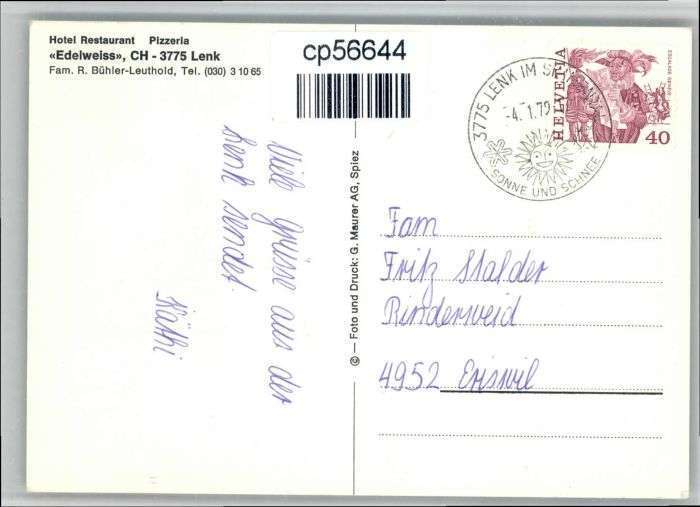 Hotel Restaurant Pizzeria
«Edelweiss», CH - 3775 Lenk
Fam. R. Bühler-Leuthold, Tel. (030) 3 10 65
cp56644
3775 LENK IM
-4.-1.79
SONNE UND SCHNEE
HELVETIA
40
Viele Grüsse aus der
Lenk sendet
Käthi
© — Foto und Druck: G. Maurer AG, Spiez
Fam
Fritz Stalder
Rinderweid
4952 Eriswil